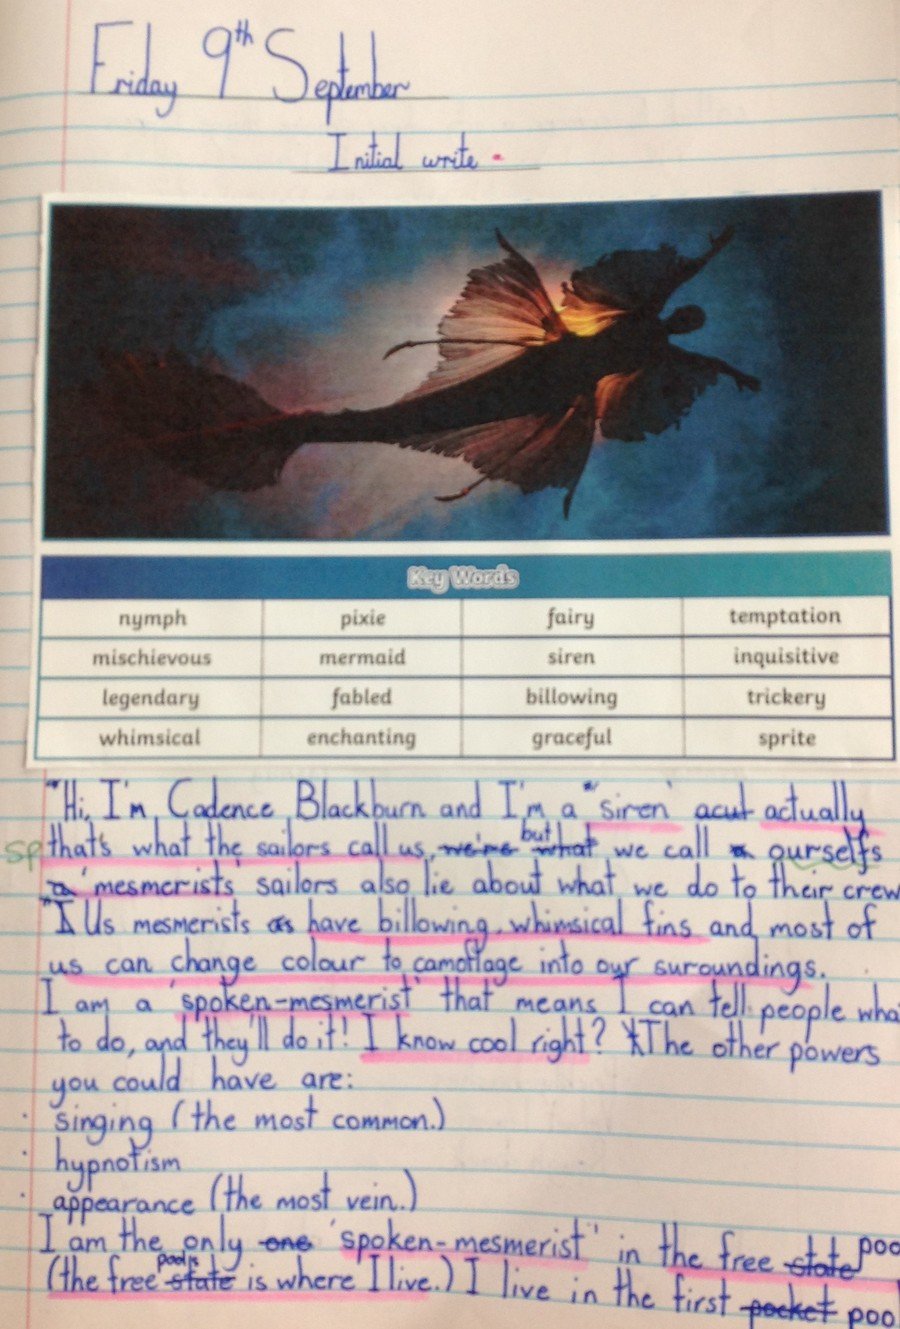 Friday 9th September
Initial write.
Key Words
nymph pixie fairy temptation
mischievous mermaid siren inquisitive
legendary fabled billowing trickery
whimsical enchanting graceful sprite
"Hi, I'm Cadence Blackburn and I'm a "siren' acut actually
sp that's what the sailors call us, we're but what we call a ourselfs
a 'mesmerists' sailors also lie about what we do to their crew
Us mesmerists as have billowing, whimsical fins and most of
us can change colour to camoflage into our suroundings.
I am a 'spoken-mesmerist' that means I can tell people wha
to do, and they'll do it! I know cool right? The other powers
you could have are:
· singing (the most common.)
· hypnotism
· appearance (the most vein.)
I am the only one 'spoken-mesmerist' in the free state poo
(the free pools state is where I live.) I live in the first pocket poo